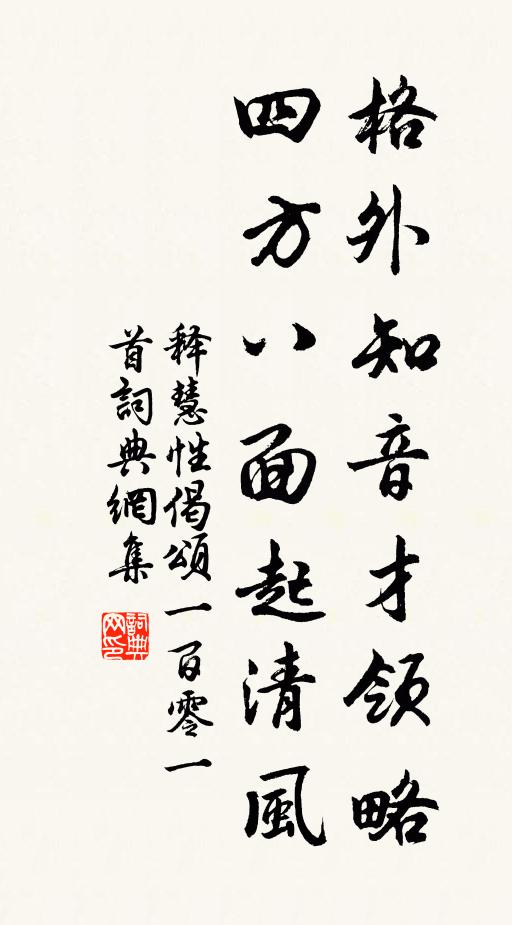 格外知音才領略
四方八面起清風
释慧性偈頌一百零一
首詞典網集
詞典网印